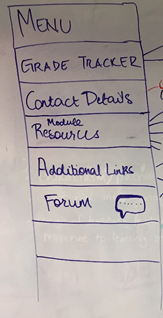 MENU
GRADE TRACKER
Contact Details
Module
Resources
Additional Links
Forum